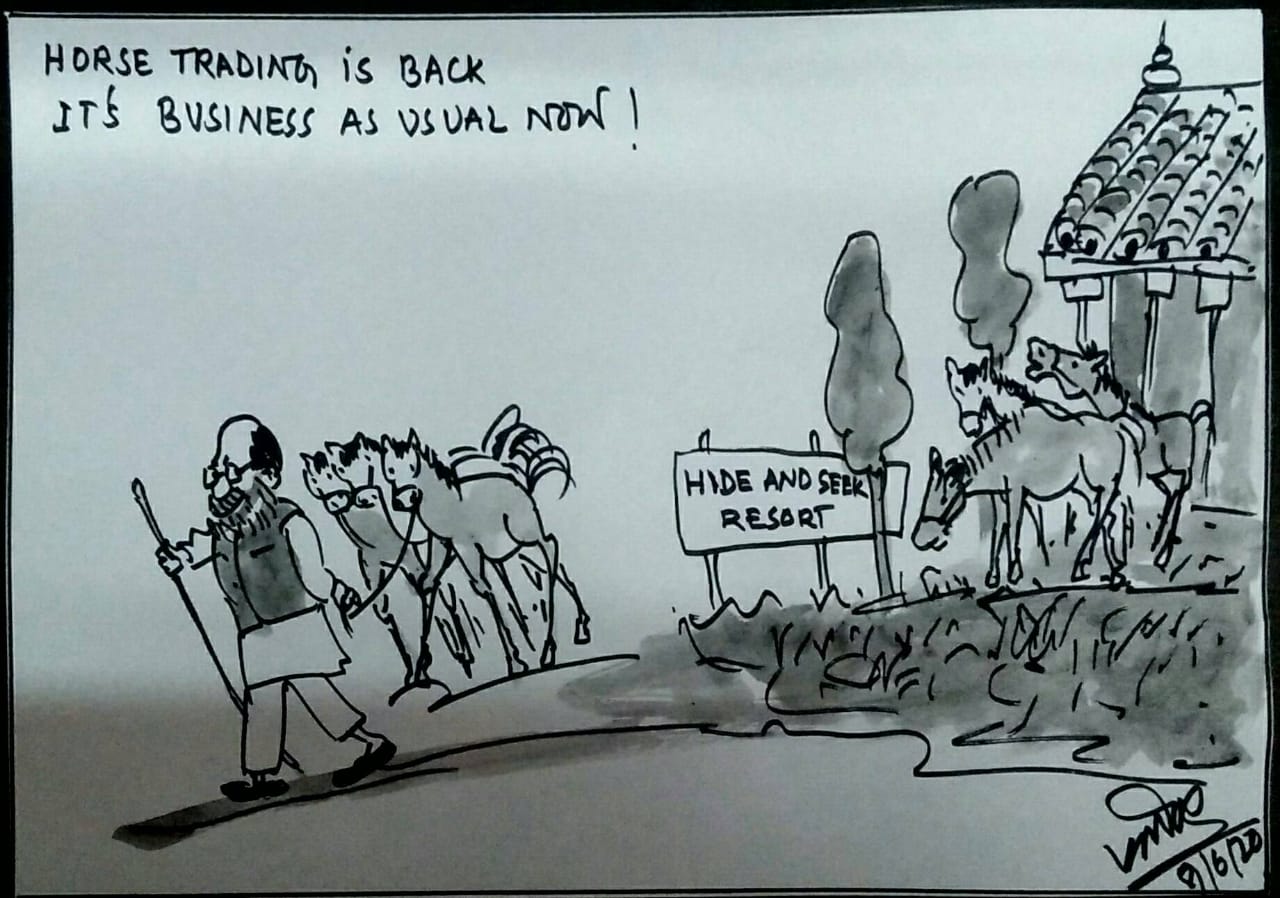 HORSE TRADING IS BACK
IT'S BUSINESS AS USUAL NOW!
HIDE AND SEEK
RESORT
8/6/20